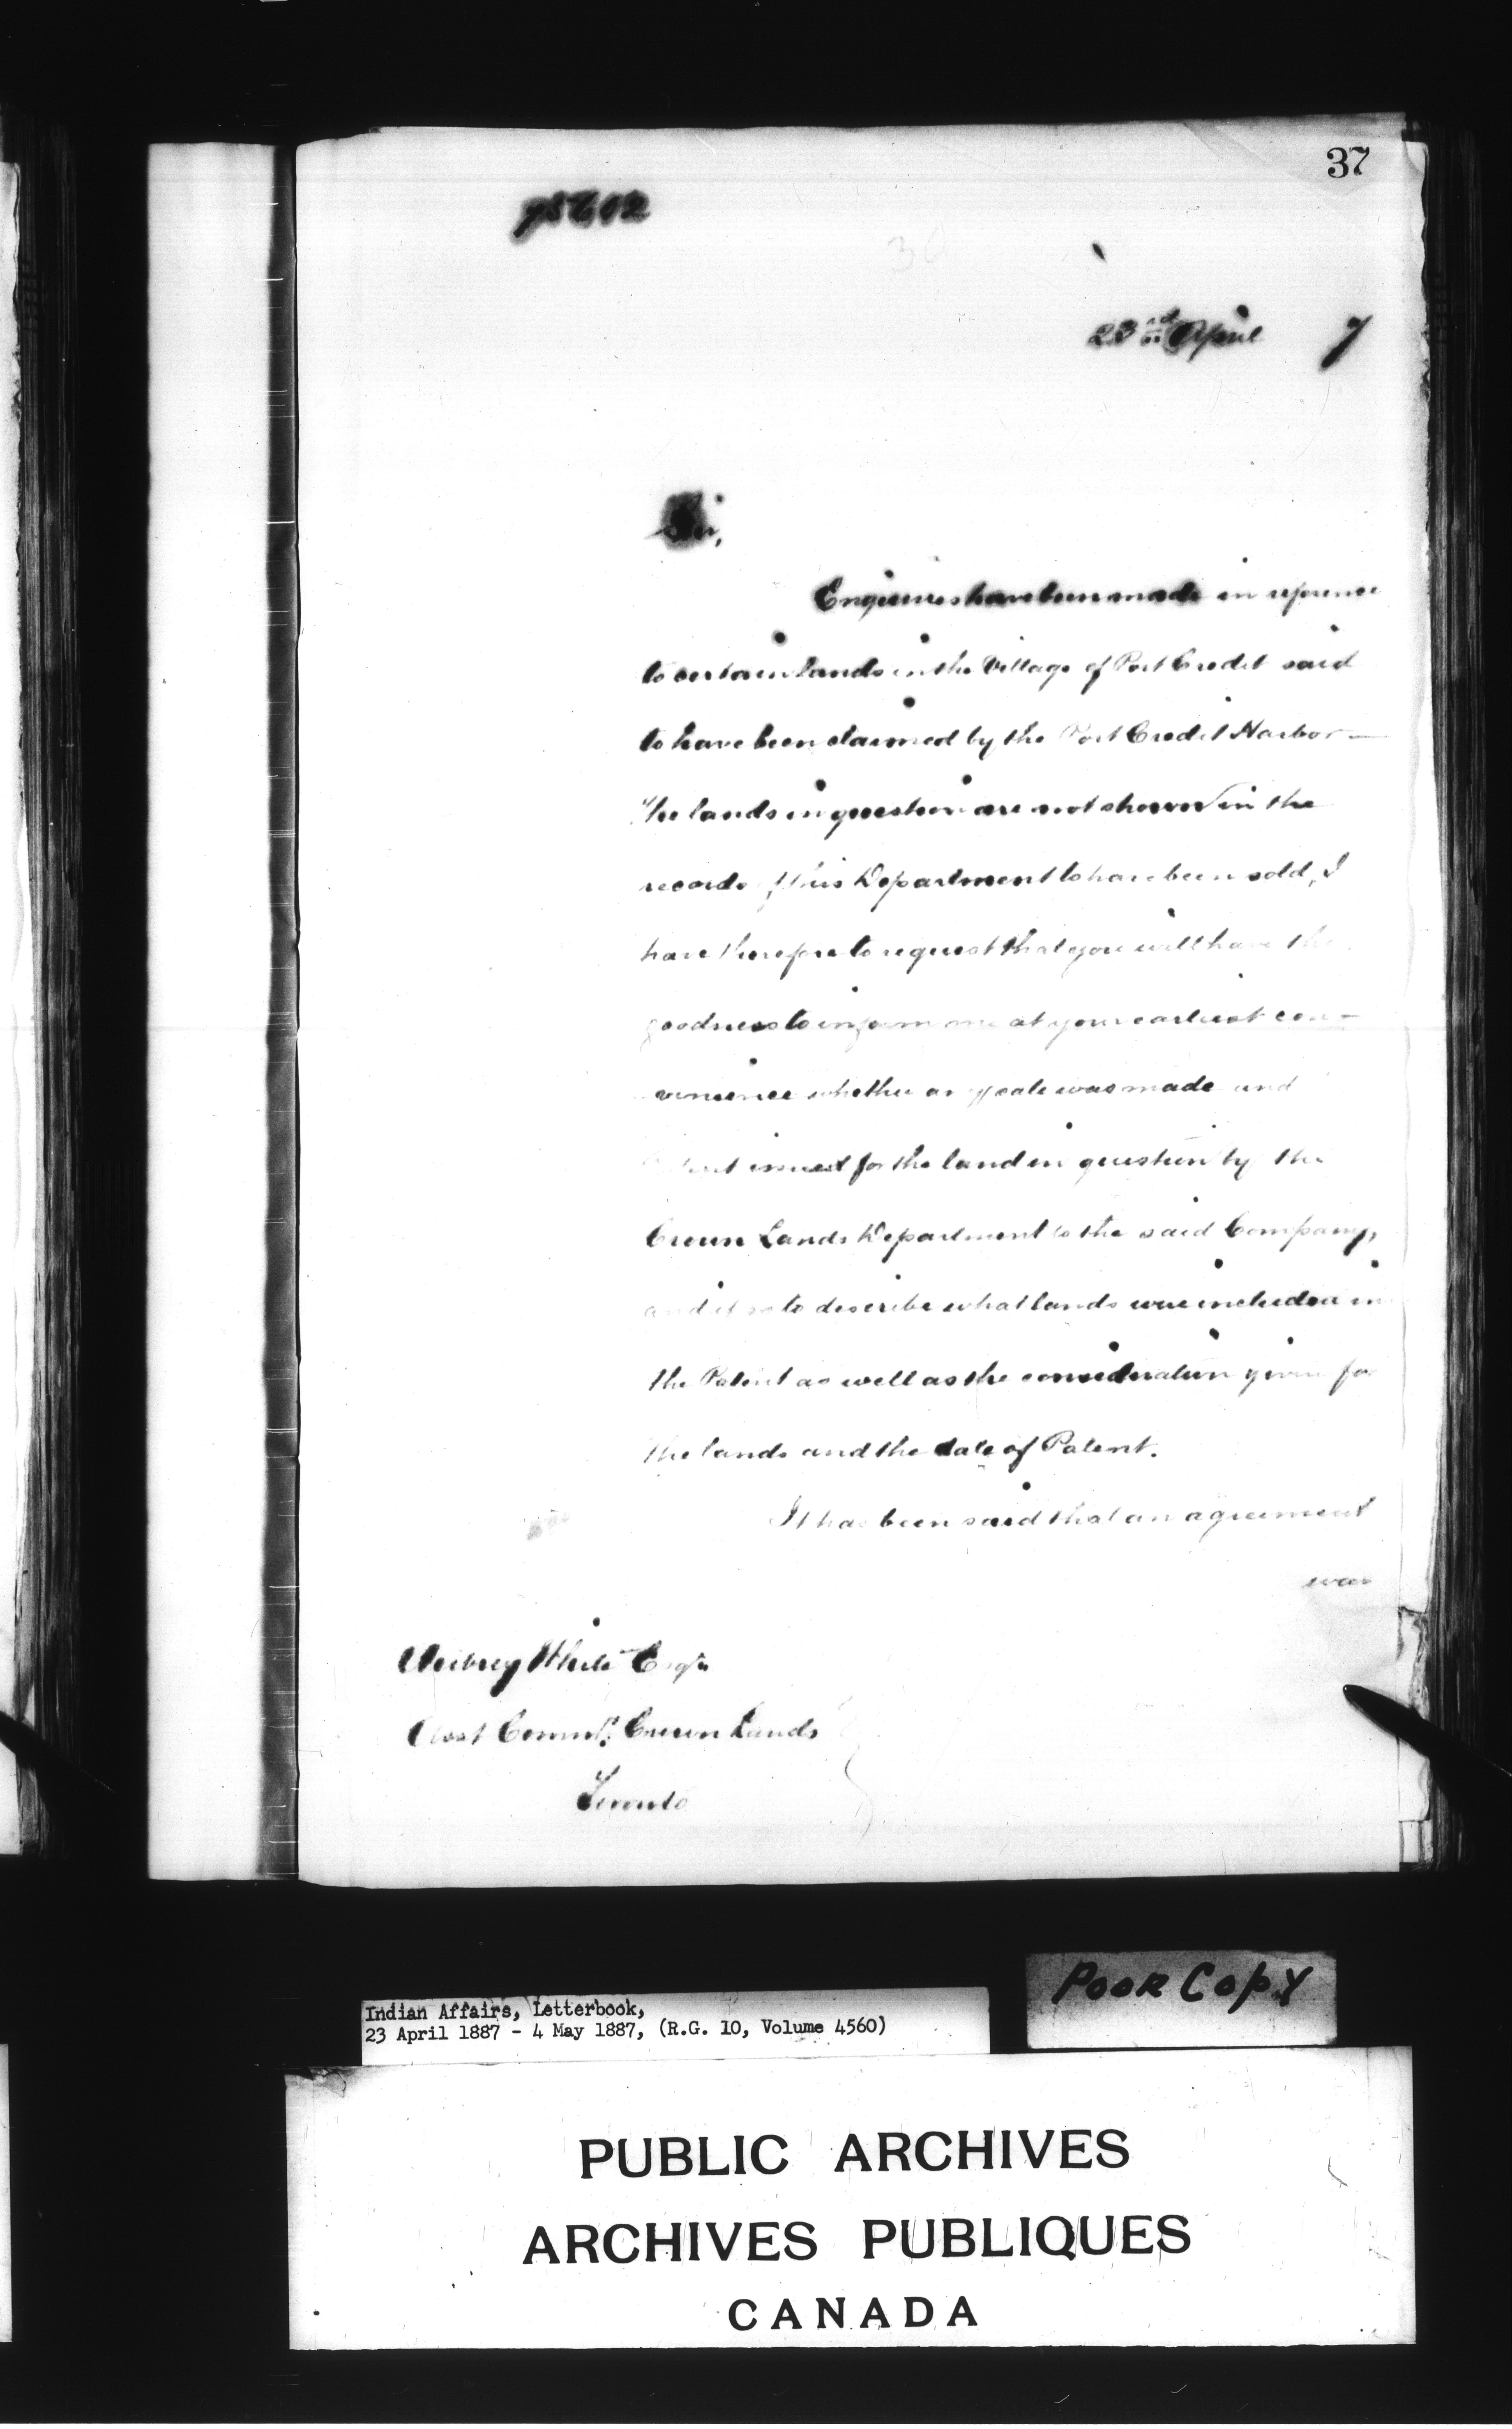 37
30
23rd April 7
Sir,
Enquiries have been made in reference
to certain lands in the Village of Port Credit said
to have been claimed by the Port Credit Harbor —
The lands in question are not shown in the
records of this Department to have been sold, I
have therefore to request that you will have the
goodness to inform me at your earliest con-
venience whether any sale was made and
Patent issued for the land in question by the
Crown Lands Department to the said Company,
and if so to describe what lands were included in
the Patent as well as the consideration given for
the lands and the date of Patent.
It has been said that an agreement
was
Aubrey White Esqr.
Asst Commr. Crown Lands
Toronto
Poor Copy
Indian Affairs, Letterbook,
23 April 1887 - 4 May 1887, (R.G. 10, Volume 4560)
PUBLIC ARCHIVES
ARCHIVES PUBLIQUES
CANADA